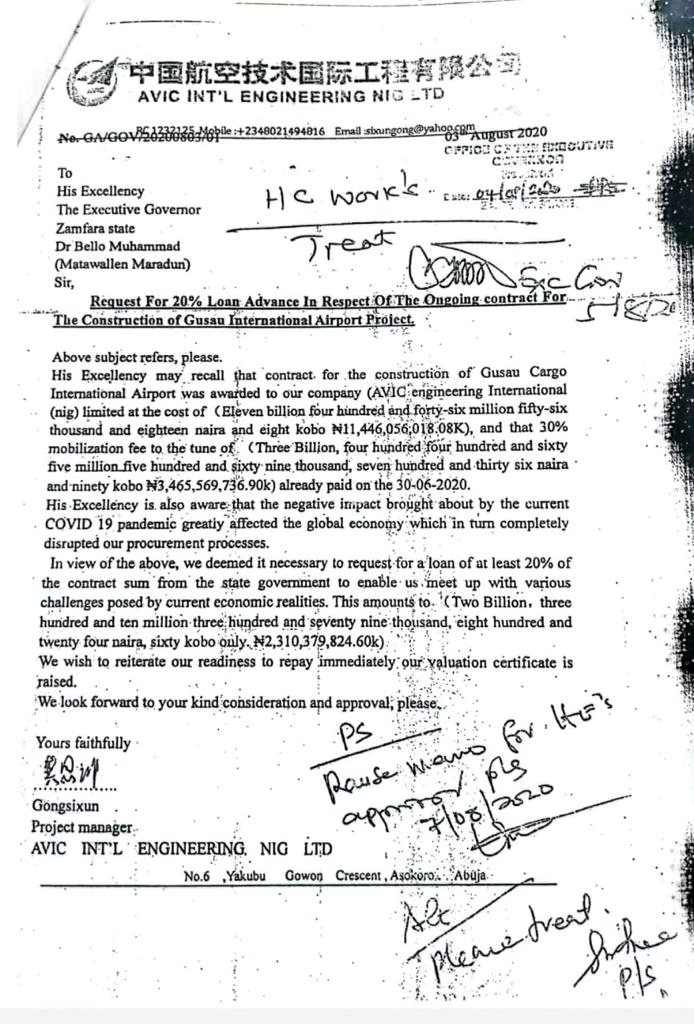 中国航空技术国际工程有限公司
AVIC INT'L ENGINEERING NIG LTD
RC1232125 Mobile :+2348021494816 Email :sixungong@yahoo.com
No. GA/GOV/20200803/01
03rd August 2020
OFFICE OF THE EXECUTIVE
GOVERNOR
To
His Excellency
The Executive Governor
Zamfara state
Dr Bello Muhammad
(Matawallen Maradun)
Sir,
HC Work's
Treat
Exc Gov
5/8/20
Request For 20% Loan Advance In Respect Of The Ongoing contract For
The Construction of Gusau International Airport Project.
Above subject refers, please.
His Excellency may recall that contract for the construction of Gusau Cargo
International Airport was awarded to our company (AVIC engineering International
(nig) limited at the cost of (Eleven billion four hundred and forty-six million fifty-six
thousand and eighteen naira and eight kobo ₦11,446,056,018.08K), and that 30%
mobilization fee to the tune of (Three Billion, four hundred four hundred and sixty
five million five hundred and sixty nine thousand, seven hundred and thirty six naira
and ninety kobo ₦3,465,569,736.90k) already paid on the 30-06-2020.
His Excellency is also aware that the negative impact brought about by the current
COVID 19 pandemic greatly affected the global economy which in turn completely
disrupted our procurement processes.
In view of the above, we deemed it necessary to request for a loan of at least 20% of
the contract sum from the state government to enable us meet up with various
challenges posed by current economic realities. This amounts to (Two Billion, three
hundred and ten million three hundred and seventy nine thousand, eight hundred and
twenty four naira, sixty kobo only. ₦2,310,379,824.60k)
We wish to reiterate our readiness to repay immediately our valuation certificate is
raised.
We look forward to your kind consideration and approval, please.
Yours faithfully
Gongsixun
Project manager
AVIC INT'L ENGINEERING NIG LTD
No.6 ,Yakubu Gowon Crescent, Asokoro, Abuja
PS
Rause memo for HE's
approval pls
7/08/2020
Please treat.
P/S